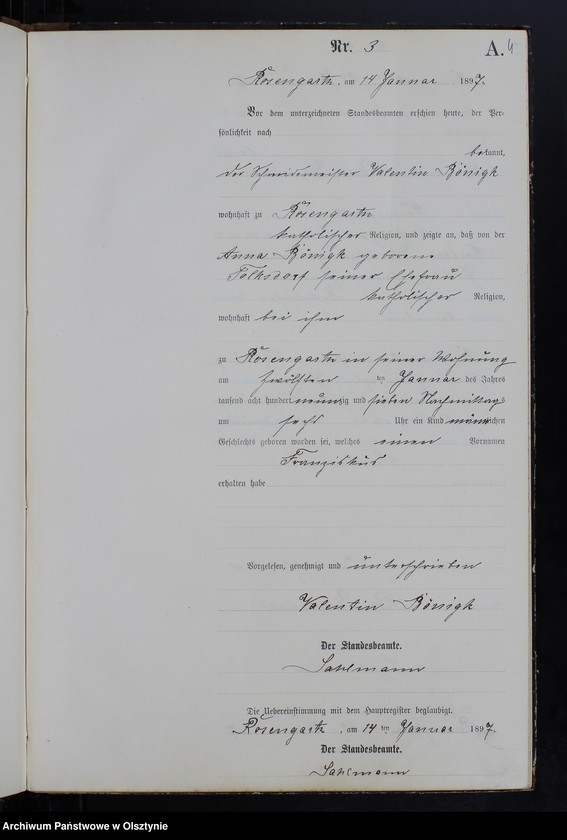 Nr. 3
A. 4
Rosengarth, am 14 Januar 1897.
Vor dem unterzeichneten Standesbeamten erschien heute, der Per-
sönlichkeit nach
bekannt,
der Schmiedemeister Valentin Bönigk
wohnhaft zu Rosengarth
katholischer Religion, und zeigte an, daß von der
Anna Bönigk geborene
Tolksdorf seiner Ehefrau
katholischer Religion,
wohnhaft bei ihm
zu Rosengarth in seiner Wohnung
am zwölften ten Januar des Jahres
tausend acht hundert neunzig und sieben Nachmittags
um sechs Uhr ein Kind männlichen
Geschlechts geboren worden sei, welches einen Vornamen
Franziskus
erhalten habe
Vorgelesen, genehmigt und unterschrieben
Valentin Bönigk
Der Standesbeamte.
Sahlmann
Die Uebereinstimmung mit dem Hauptregister beglaubigt.
Rosengarth, am 14 ten Januar 1897.
Der Standesbeamte.
Sahlmann
Archiwum Państwowe w Olsztynie